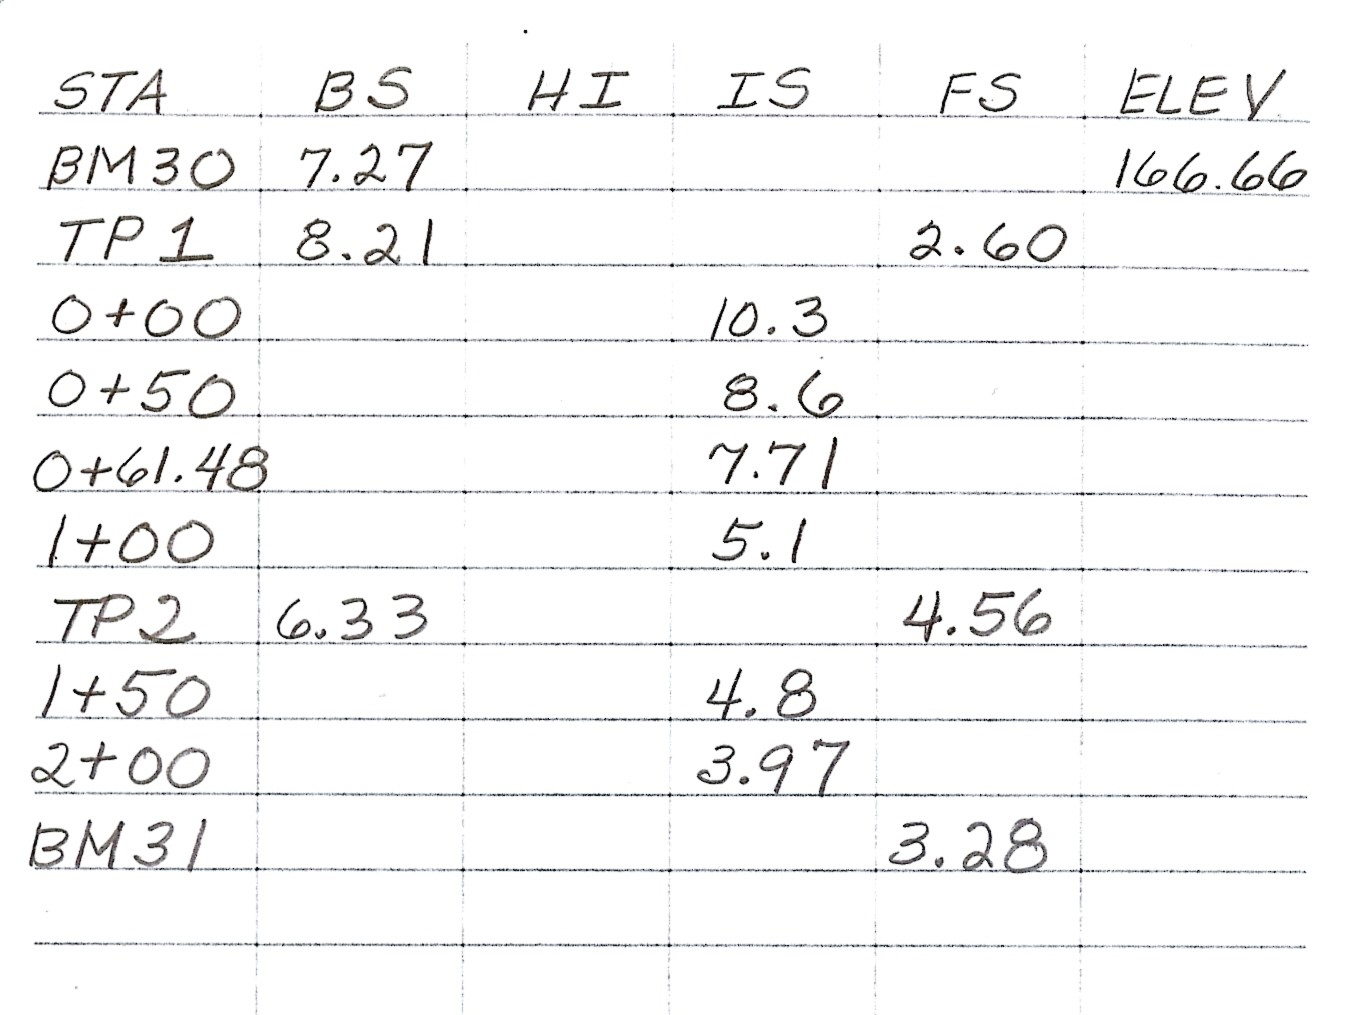 STA BS HI IS FS ELEV
BM30 7.27 166.66
TP1 8.21 2.60
0+00 10.3
0+50 8.6
0+61.48 7.71
1+00 5.1
TP2 6.33 4.56
1+50 4.8
2+00 3.97
BM31 3.28